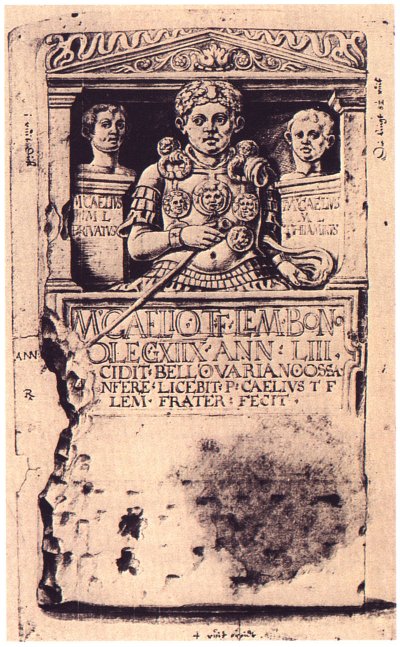 M·CAELIVS
M L
PRIVATVS
M·CAELIVS
M·L
THIAMINVS
M·CAELIO T F LEM·BON
O LEG XIIX·ANN·LIII·
CIDIT·BELLO VARIANO OSSA
NFERE·LICEBIT·P·CAELIVS T F
LEM·FRATER·FECIT·
ANN